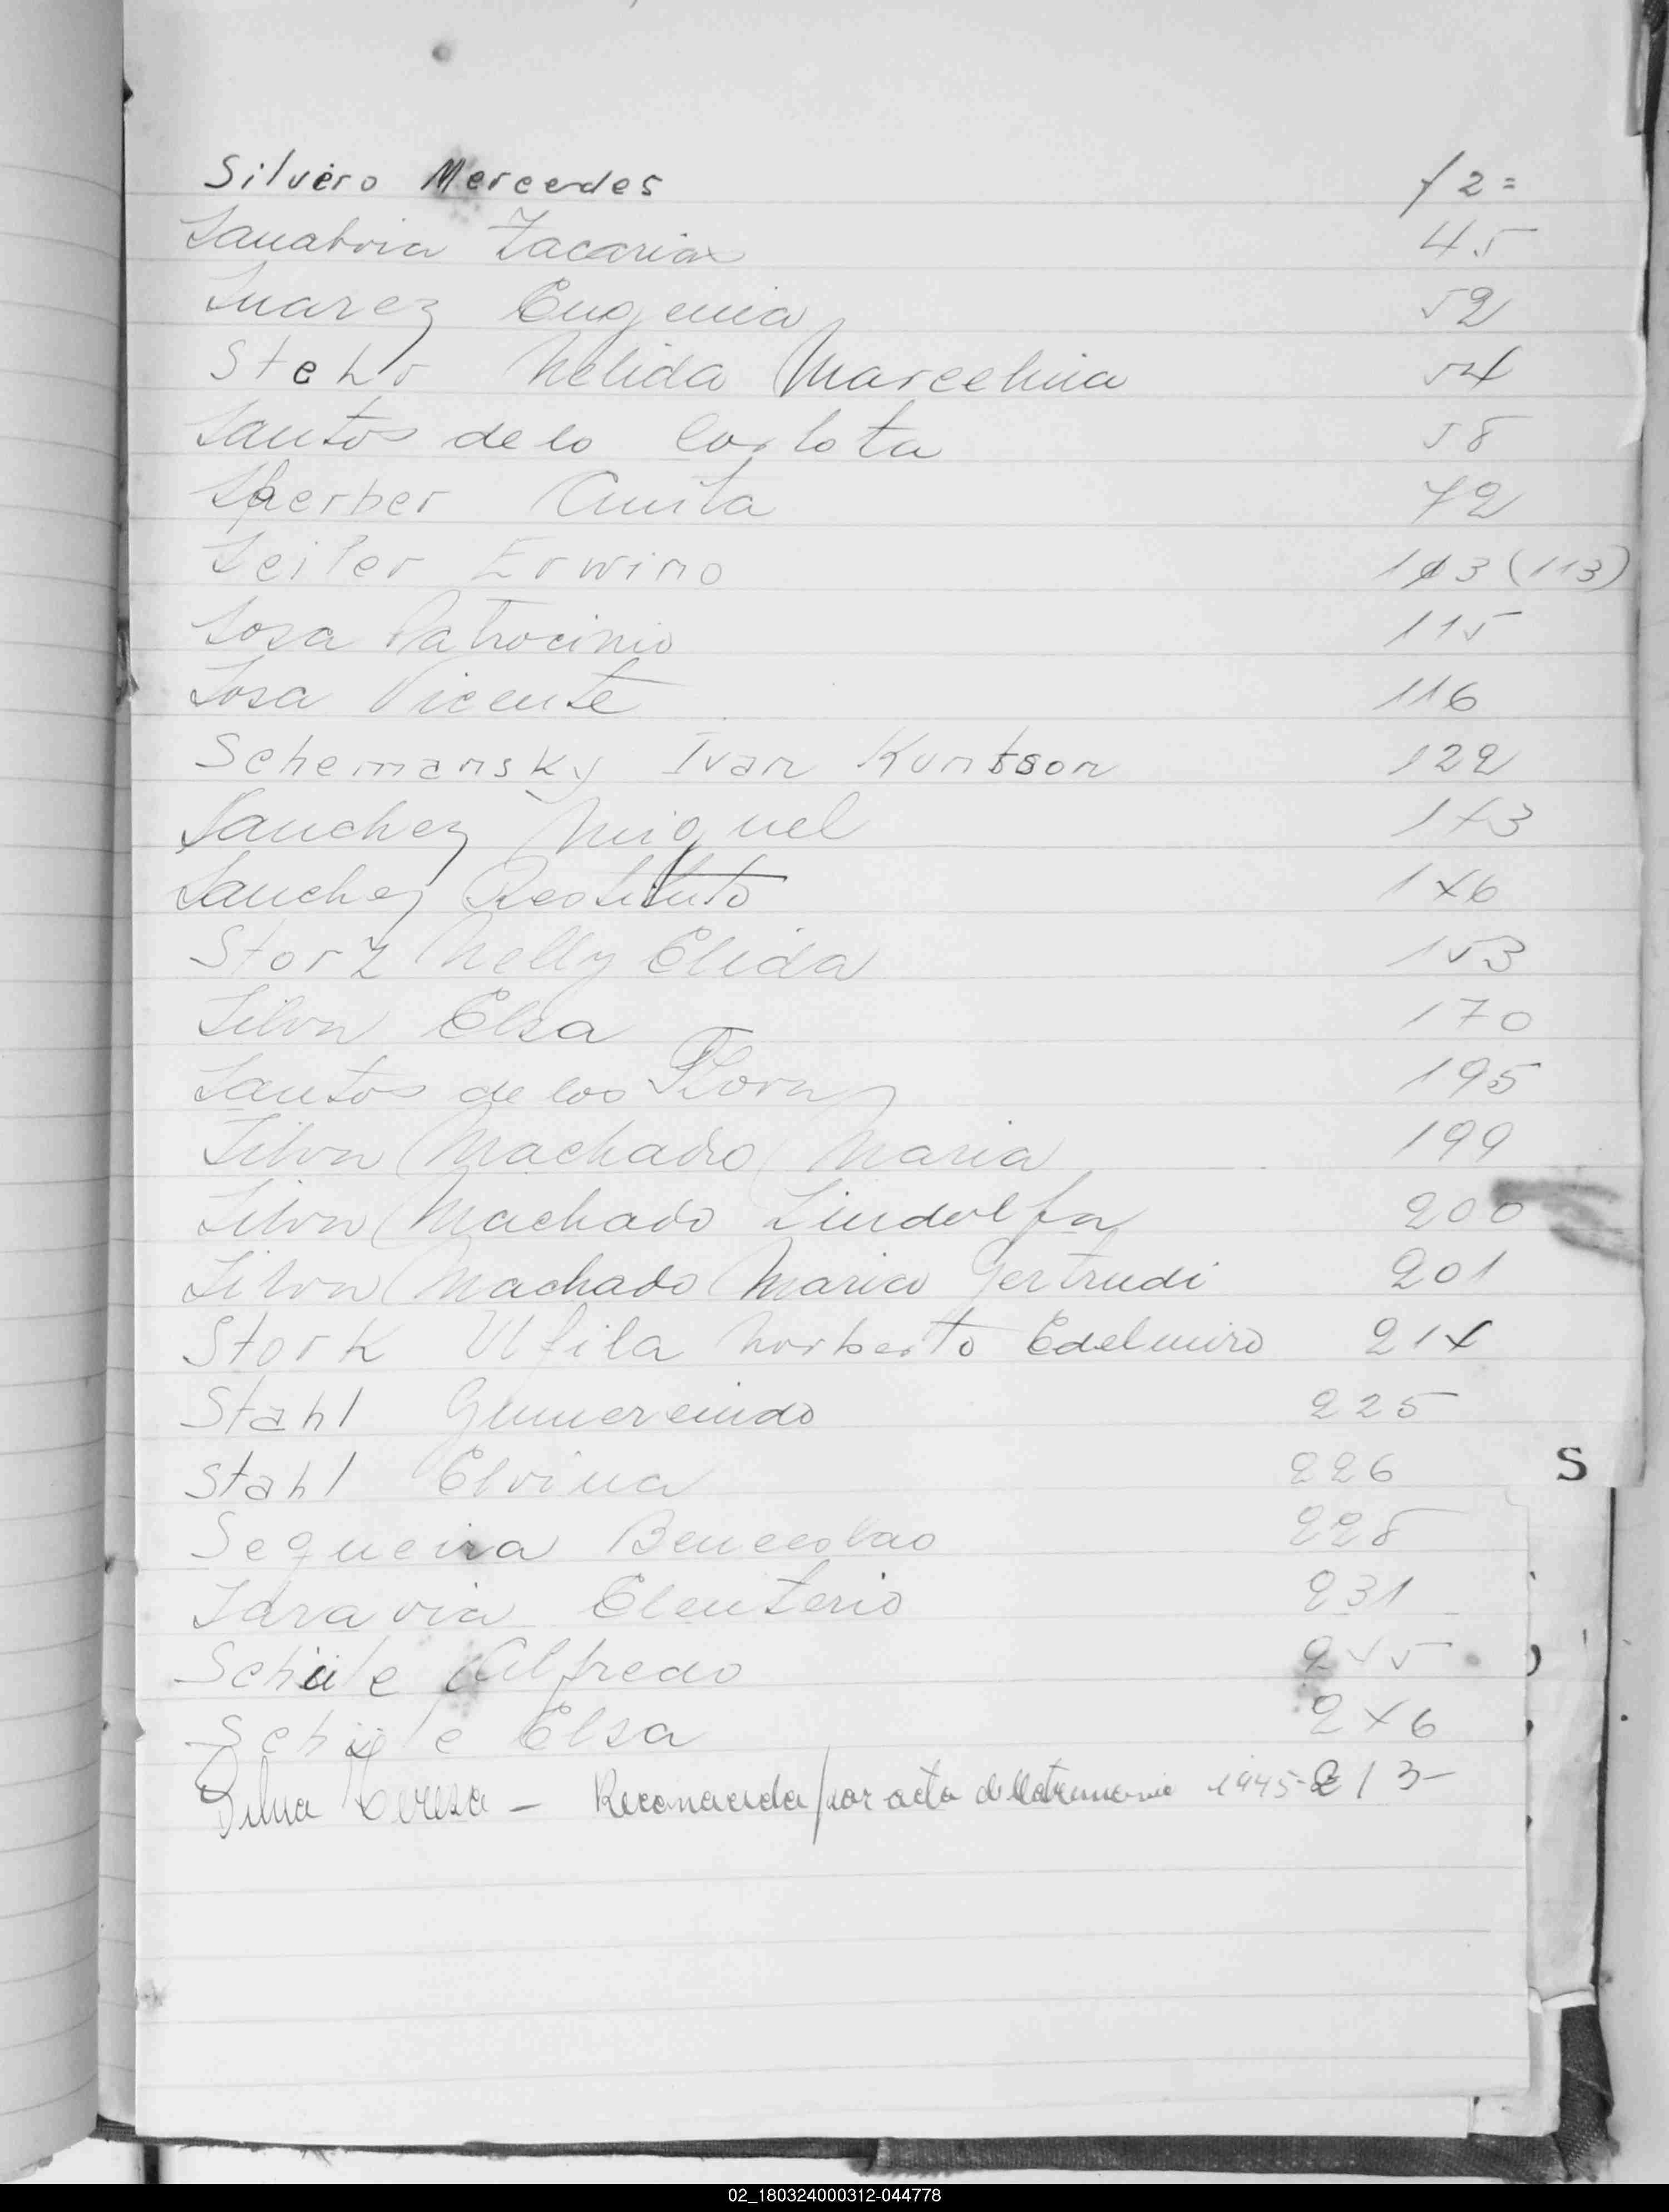 Silvero Mercedes f 2=
Sanabria Zacarias 45
Suarez Eugenia 52
Stehr Nelida Marcelina 54
Santos de lo Carlota 58
Sperber Anita 72
Seiler Erwino 113 (113)
Sosa Patrocinio 115
Sosa Vicente 116
Schemansky Ivan Kuntson 122
Sanchez Miguel 143
Sanchez Restituto 146
Storz Nelly Elida 153
Silva Elsa 170
Santos de los 195
Silva Machado Maria 199
Silva Machado Lindolfa 200
Silva Machado Maria Gertrudi 201
Stork Ulfila Norberto Edelmiro 214
Stahl Gumercindo 225
Stahl Elvina 226
S
Sequeira Benceslao 228
Saravia Eleuterio 231
Schüle Alfredo 245
Schüle Elsa 246
Silva Teresa – Reconocida por acta de Matrimonio 1945- 213-
02_180324000312-044778